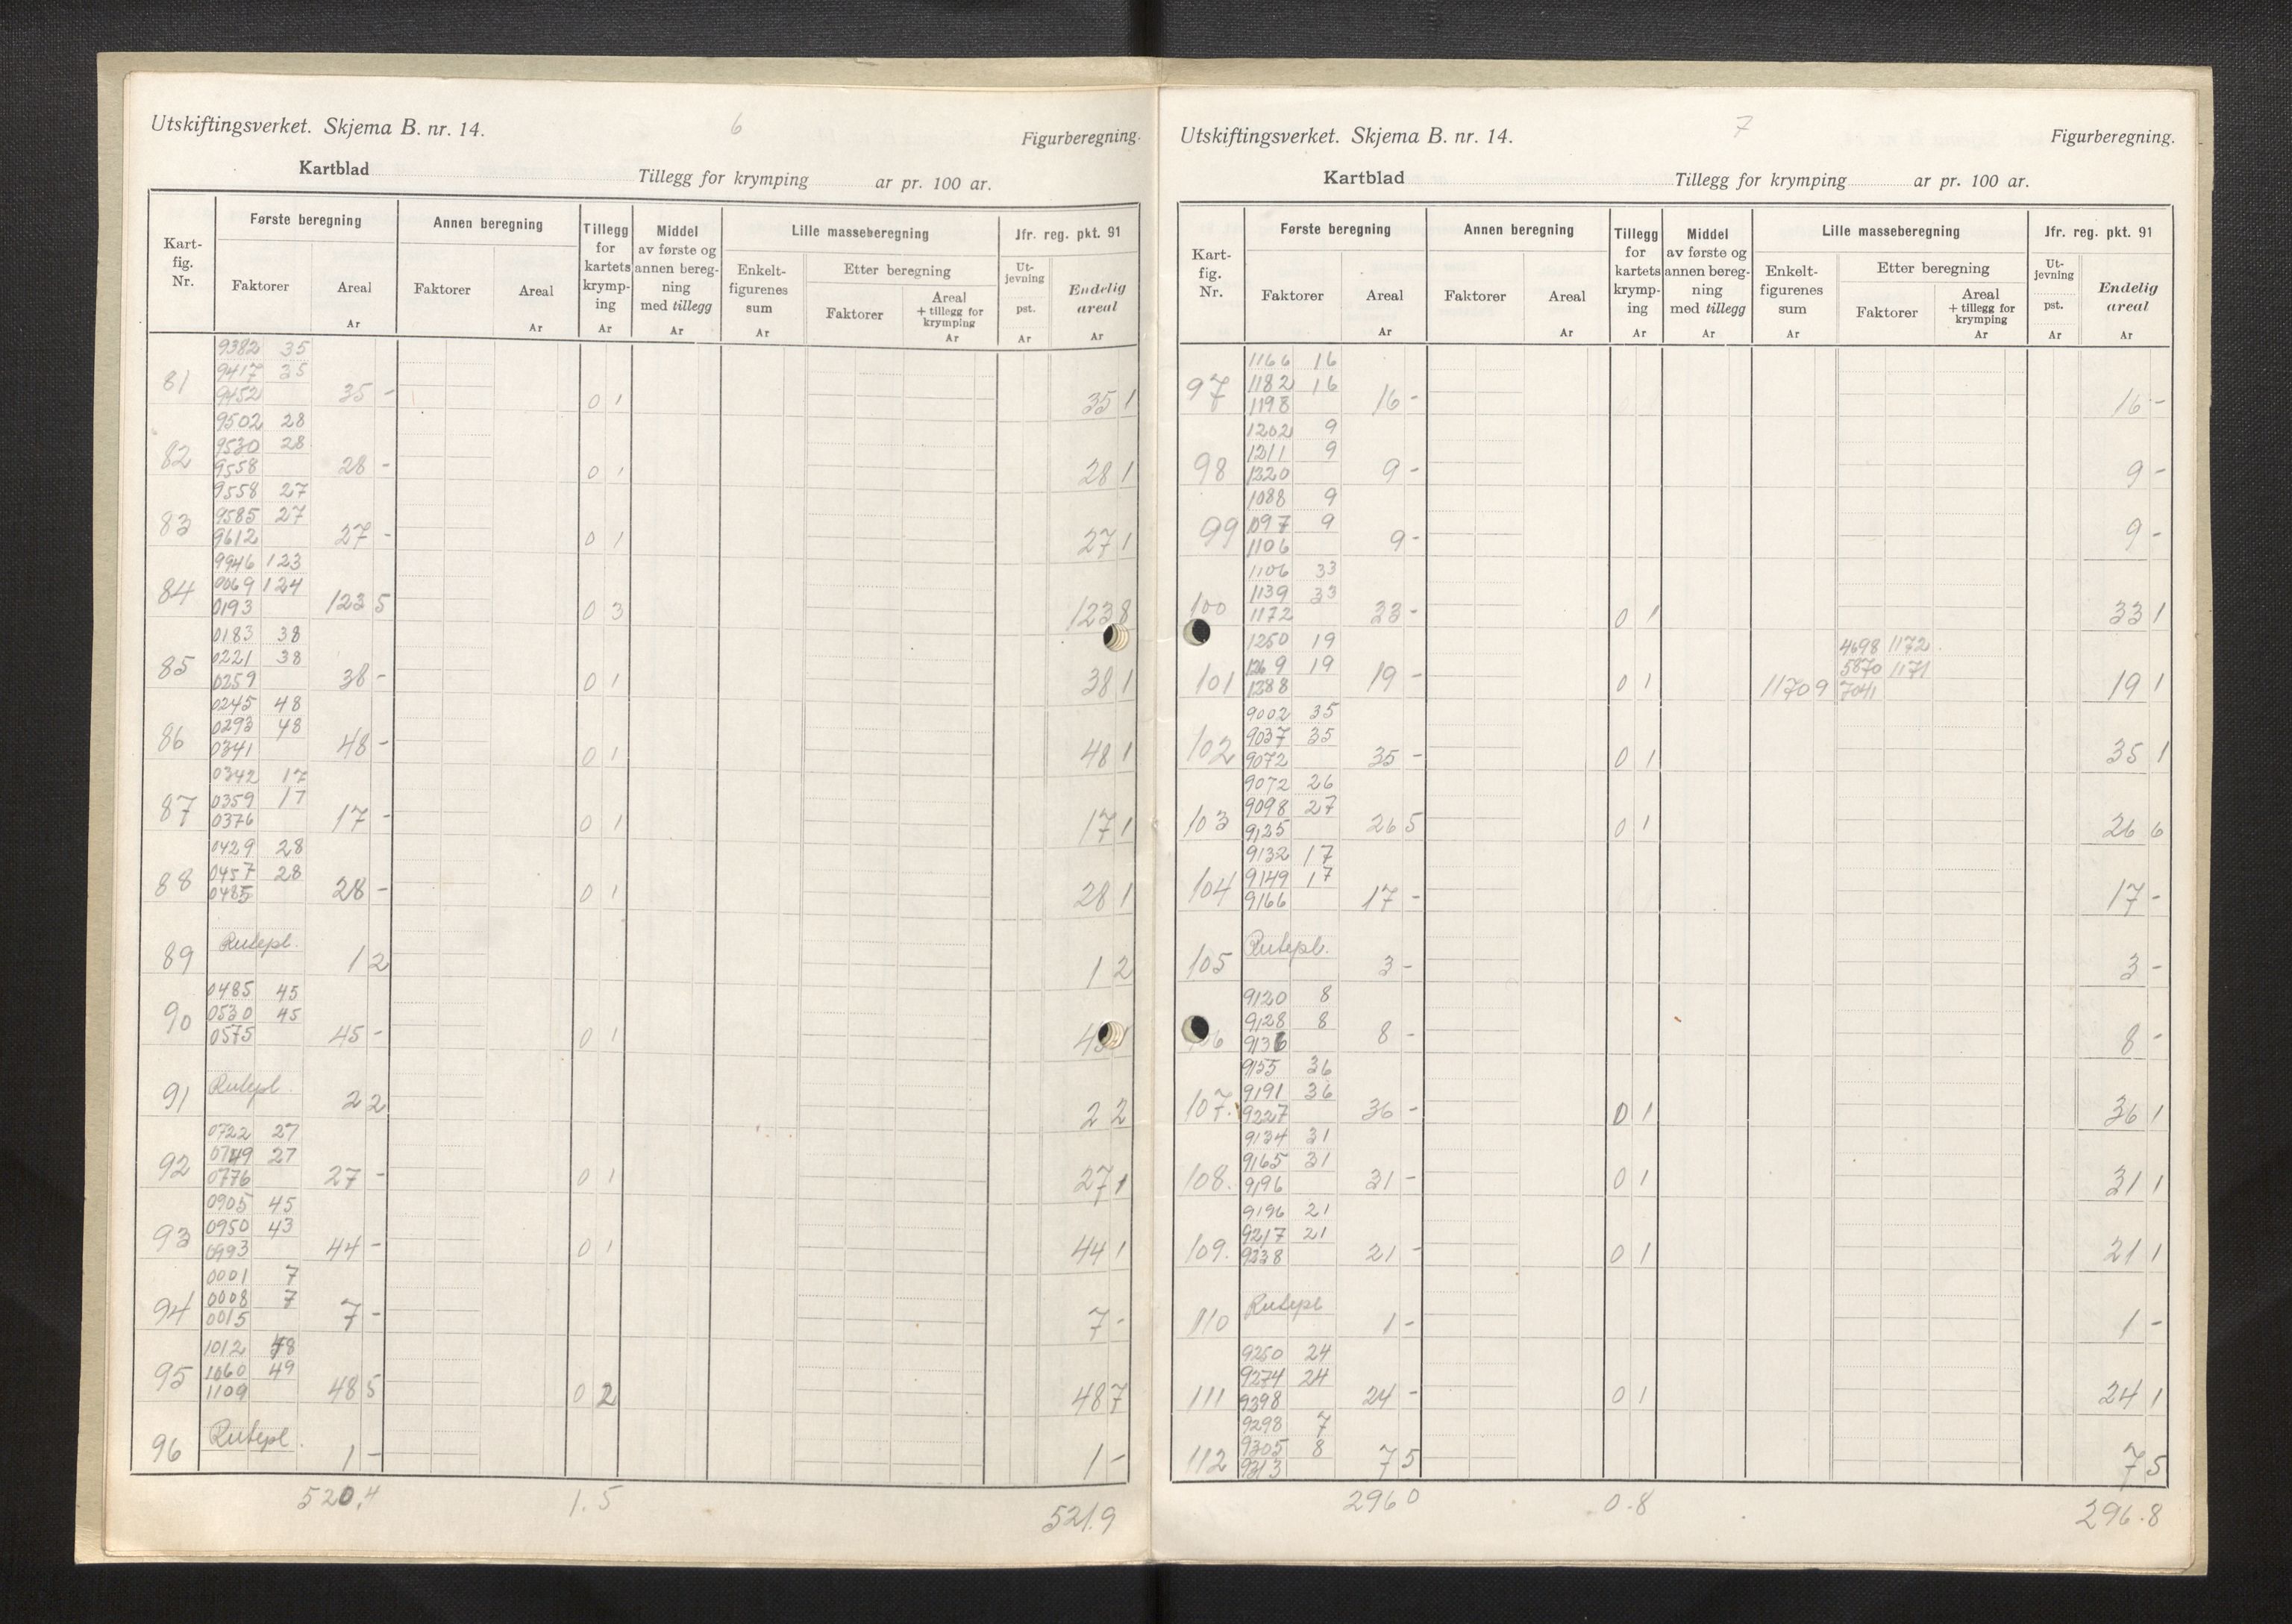 6
Utskiftingsverket. Skjema B. nr. 14.
Figurberegning.
Kartblad
Tillegg for krymping ar pr. 100 ar.
Kart-fig. Nr.
Første beregning
Faktorer
Areal
Ar
Annen beregning
Faktorer
Areal
Ar
Tillegg for kartets krymp-ing
Ar
Middel av første og annen bereg-ning med tillegg
Ar
Lille masseberegning
Enkelt-figurenes sum
Ar
Etter beregning
Faktorer
Areal + tillegg for krymping
Ar
Jfr. reg. pkt. 91
Ut-jevning
pst.
Ar
Endelig areal
Ar
9382 35
9417 35
81 9452 35 - 0 1 35 1
9502 28
9530 28
82 9558 28 - 0 1 28 1
9558 27
9585 27
83 9612 27 - 0 1 27 1
9946 123
0069 124
84 0193 123 5 0 3 123 8
0183 38
0221 38
85 0259 38 - 0 1 38 1
0245 48
0293 48
86 0341 48 - 0 1 48 1
0342 17
0359 17
87 0376 17 - 0 1 17 1
0429 28
0457 28
88 0485 28 - 0 1 28 1
Rutepl.
89 1 2 1 2
0485 45
0530 45
90 0575 45 - 0 1 45 1
Rutepl.
91 2 2 2 2
0722 27
0749 27
92 0776 27 - 0 1 27 1
0905 45
0950 43
93 0993 44 - 0 1 44 1
0001 7
0008 7
94 0015 7 - 7 -
1012 48
1060 49
95 1109 48 5 0 2 48 7
Rutepl.
96 1 - 1 -
520,4 1.5 521.9
7
Utskiftingsverket. Skjema B. nr. 14.
Figurberegning.
Kartblad
Tillegg for krymping ar pr. 100 ar.
Kart-fig. Nr.
Første beregning
Faktorer
Areal
Ar
Annen beregning
Faktorer
Areal
Ar
Tillegg for kartets krymp-ing
Ar
Middel av første og annen bereg-ning med tillegg
Ar
Lille masseberegning
Enkelt-figurenes sum
Ar
Etter beregning
Faktorer
Areal + tillegg for krymping
Ar
Jfr. reg. pkt. 91
Ut-jevning
pst.
Ar
Endelig areal
Ar
1166 16
1182 16
97 1198 16 - 16 -
1202 9
1211 9
98 1220 9 - 9 -
1088 9
1097 9
99 1106 9 - 9 -
1106 33
1139 33
100 1172 33 - 0 1 33 1
1250 19 4698 1172
1269 19 5870 1171
101 1288 19 - 0 1 1170 9 7041 19 1
9002 35
9037 35
102 9072 35 - 0 1 35 1
9072 26
9098 27
103 9125 26 5 0 1 26 6
9132 17
9149 17
104 9166 17 - 17 -
Rutepl.
105 3 - 3 -
9120 8
9128 8
6 9136 8 - 8 -
9155 36
9191 36
107. 9227 36 - 0 1 36 1
9134 31
9165 31
108. 9196 31 - 0 1 31 1
9196 21
9217 21
109. 9238 21 - 0 1 21 1
Rutepl
110 1 - 1 -
9250 24
9274 24
111 9298 24 - 0 1 24 1
9298 7
9305 8
112 9313 7 5 7 5
296 0 0.8 296.8